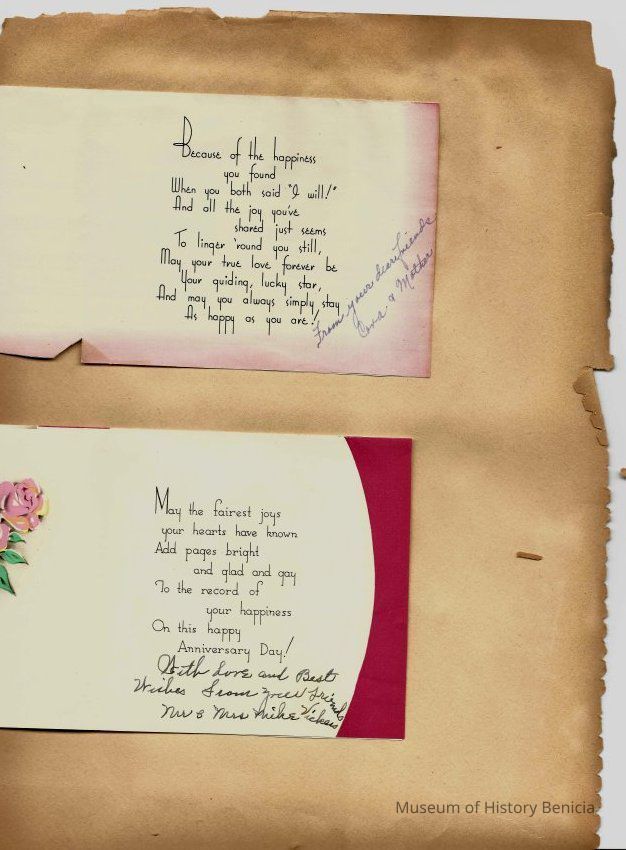 Because of the happiness
you found
When you both said "I will!"
And all the joy you've
shared just seems
To linger 'round you still,
May your true love forever be
Your guiding, lucky star,
And may you always simply stay
As happy as you are!
From your dear friends
Cora & Mother
May the fairest joys
your hearts have known
Add pages bright
and glad and gay
To the record of
your happiness
On this happy
Anniversary Day!
With Love and Best
Wishes from your friends
Mr & Mrs Mike Vickers
Museum of History Benicia